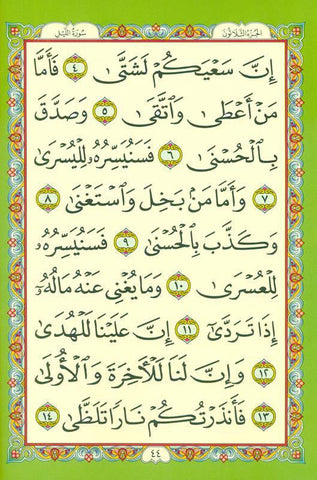 الجزء الثلاثون سورة الليل
إِنَّ سَعْيَكُمْ لَشَتَّىٰ ٤ فَأَمَّا
مَنْ أَعْطَىٰ وَٱتَّقَىٰ ٥ وَصَدَّقَ
بِٱلْحُسْنَىٰ ٦ فَسَنُيَسِّرُهُۥ لِلْيُسْرَىٰ
٧ وَأَمَّا مَنۢ بَخِلَ وَٱسْتَغْنَىٰ ٨
وَكَذَّبَ بِٱلْحُسْنَىٰ ٩ فَسَنُيَسِّرُهُۥ
لِلْعُسْرَىٰ ١٠ وَمَا يُغْنِى عَنْهُ مَالُهُۥٓ
إِذَا تَرَدَّىٰٓ ١١ إِنَّ عَلَيْنَا لَلْهُدَىٰ
١٢ وَإِنَّ لَنَا لَلْءَاخِرَةَ وَٱلْأُولَىٰ
١٣ فَأَنذَرْتُكُمْ نَارًا تَلَظَّىٰ ١٤
٤٤